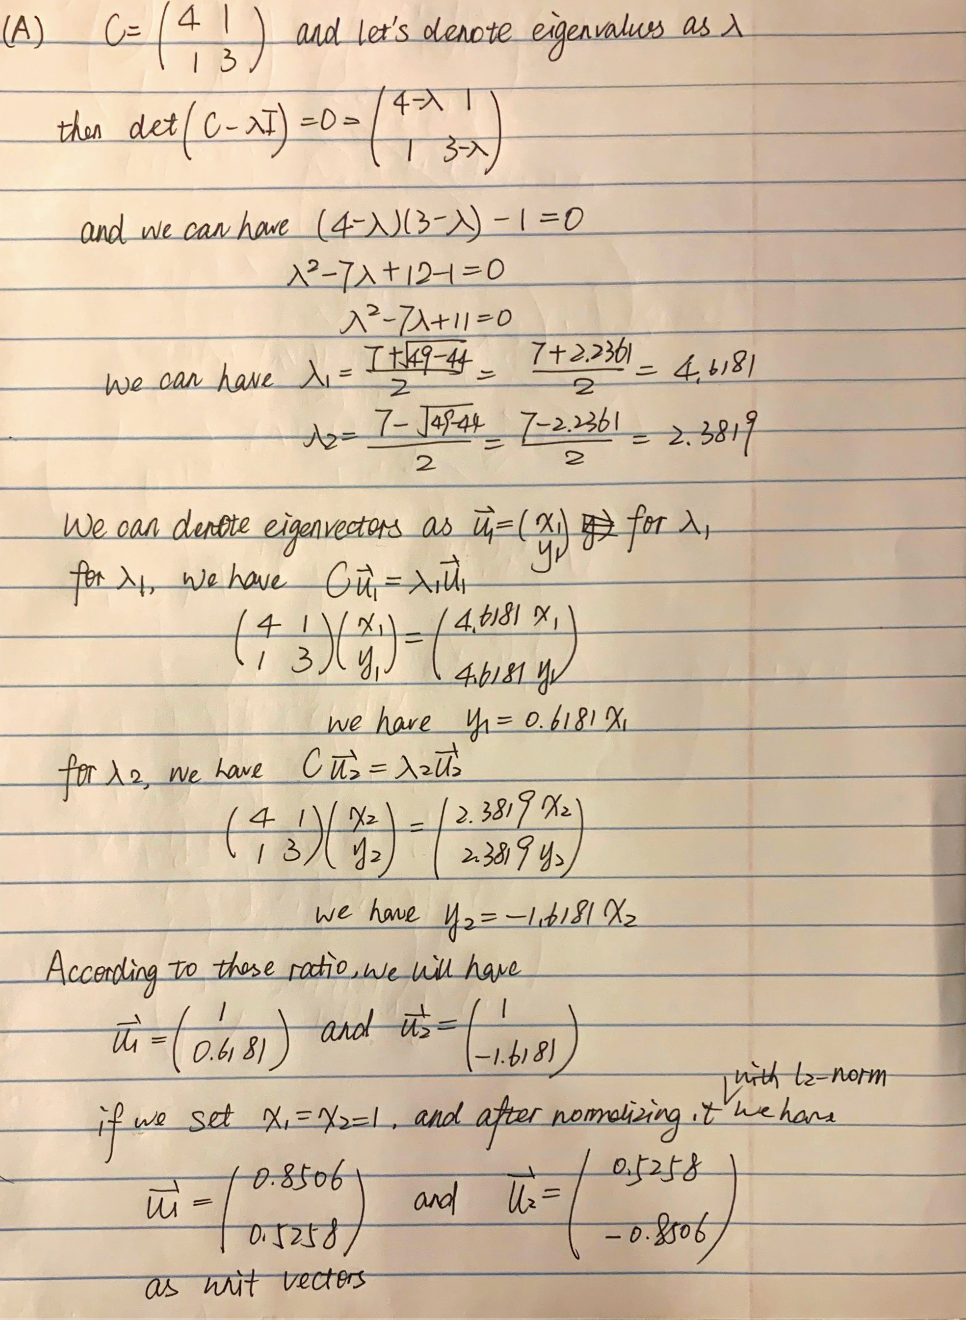 (A) C = (4 1; 1 3) and let's denote eigenvalues as λ
then det(C - λI) = 0 = (4-λ 1; 1 3-λ)
and we can have (4-λ)(3-λ) - 1 = 0
λ² - 7λ + 12 - 1 = 0
λ² - 7λ + 11 = 0
we can have λ₁ = (7 + √(49-44))/2 = (7 + 2.2361)/2 = 4.6181
λ₂ = (7 - √(49-44))/2 = (7 - 2.2361)/2 = 2.3819
We can denote eigenvectors as u⃗₁ = (x₁; y₁) for λ₁
for λ₁, we have Cu⃗₁ = λ₁u⃗₁
(4 1; 1 3)(x₁; y₁) = (4.6181 x₁; 4.6181 y₁)
we have y₁ = 0.6181 x₁
for λ₂, we have Cu⃗₂ = λ₂u⃗₂
(4 1; 1 3)(x₂; y₂) = (2.3819 x₂; 2.3819 y₂)
we have y₂ = -1.6181 x₂
According to those ratio, we will have
u⃗₁ = (1; 0.6181) and u⃗₂ = (1; -1.6181)
with l2-norm
if we set x₁ = x₂ = 1, and after normalizing it we have
u⃗₁ = (0.8506; 0.5258) and u⃗₂ = (0.5258; -0.8506)
as unit vectors